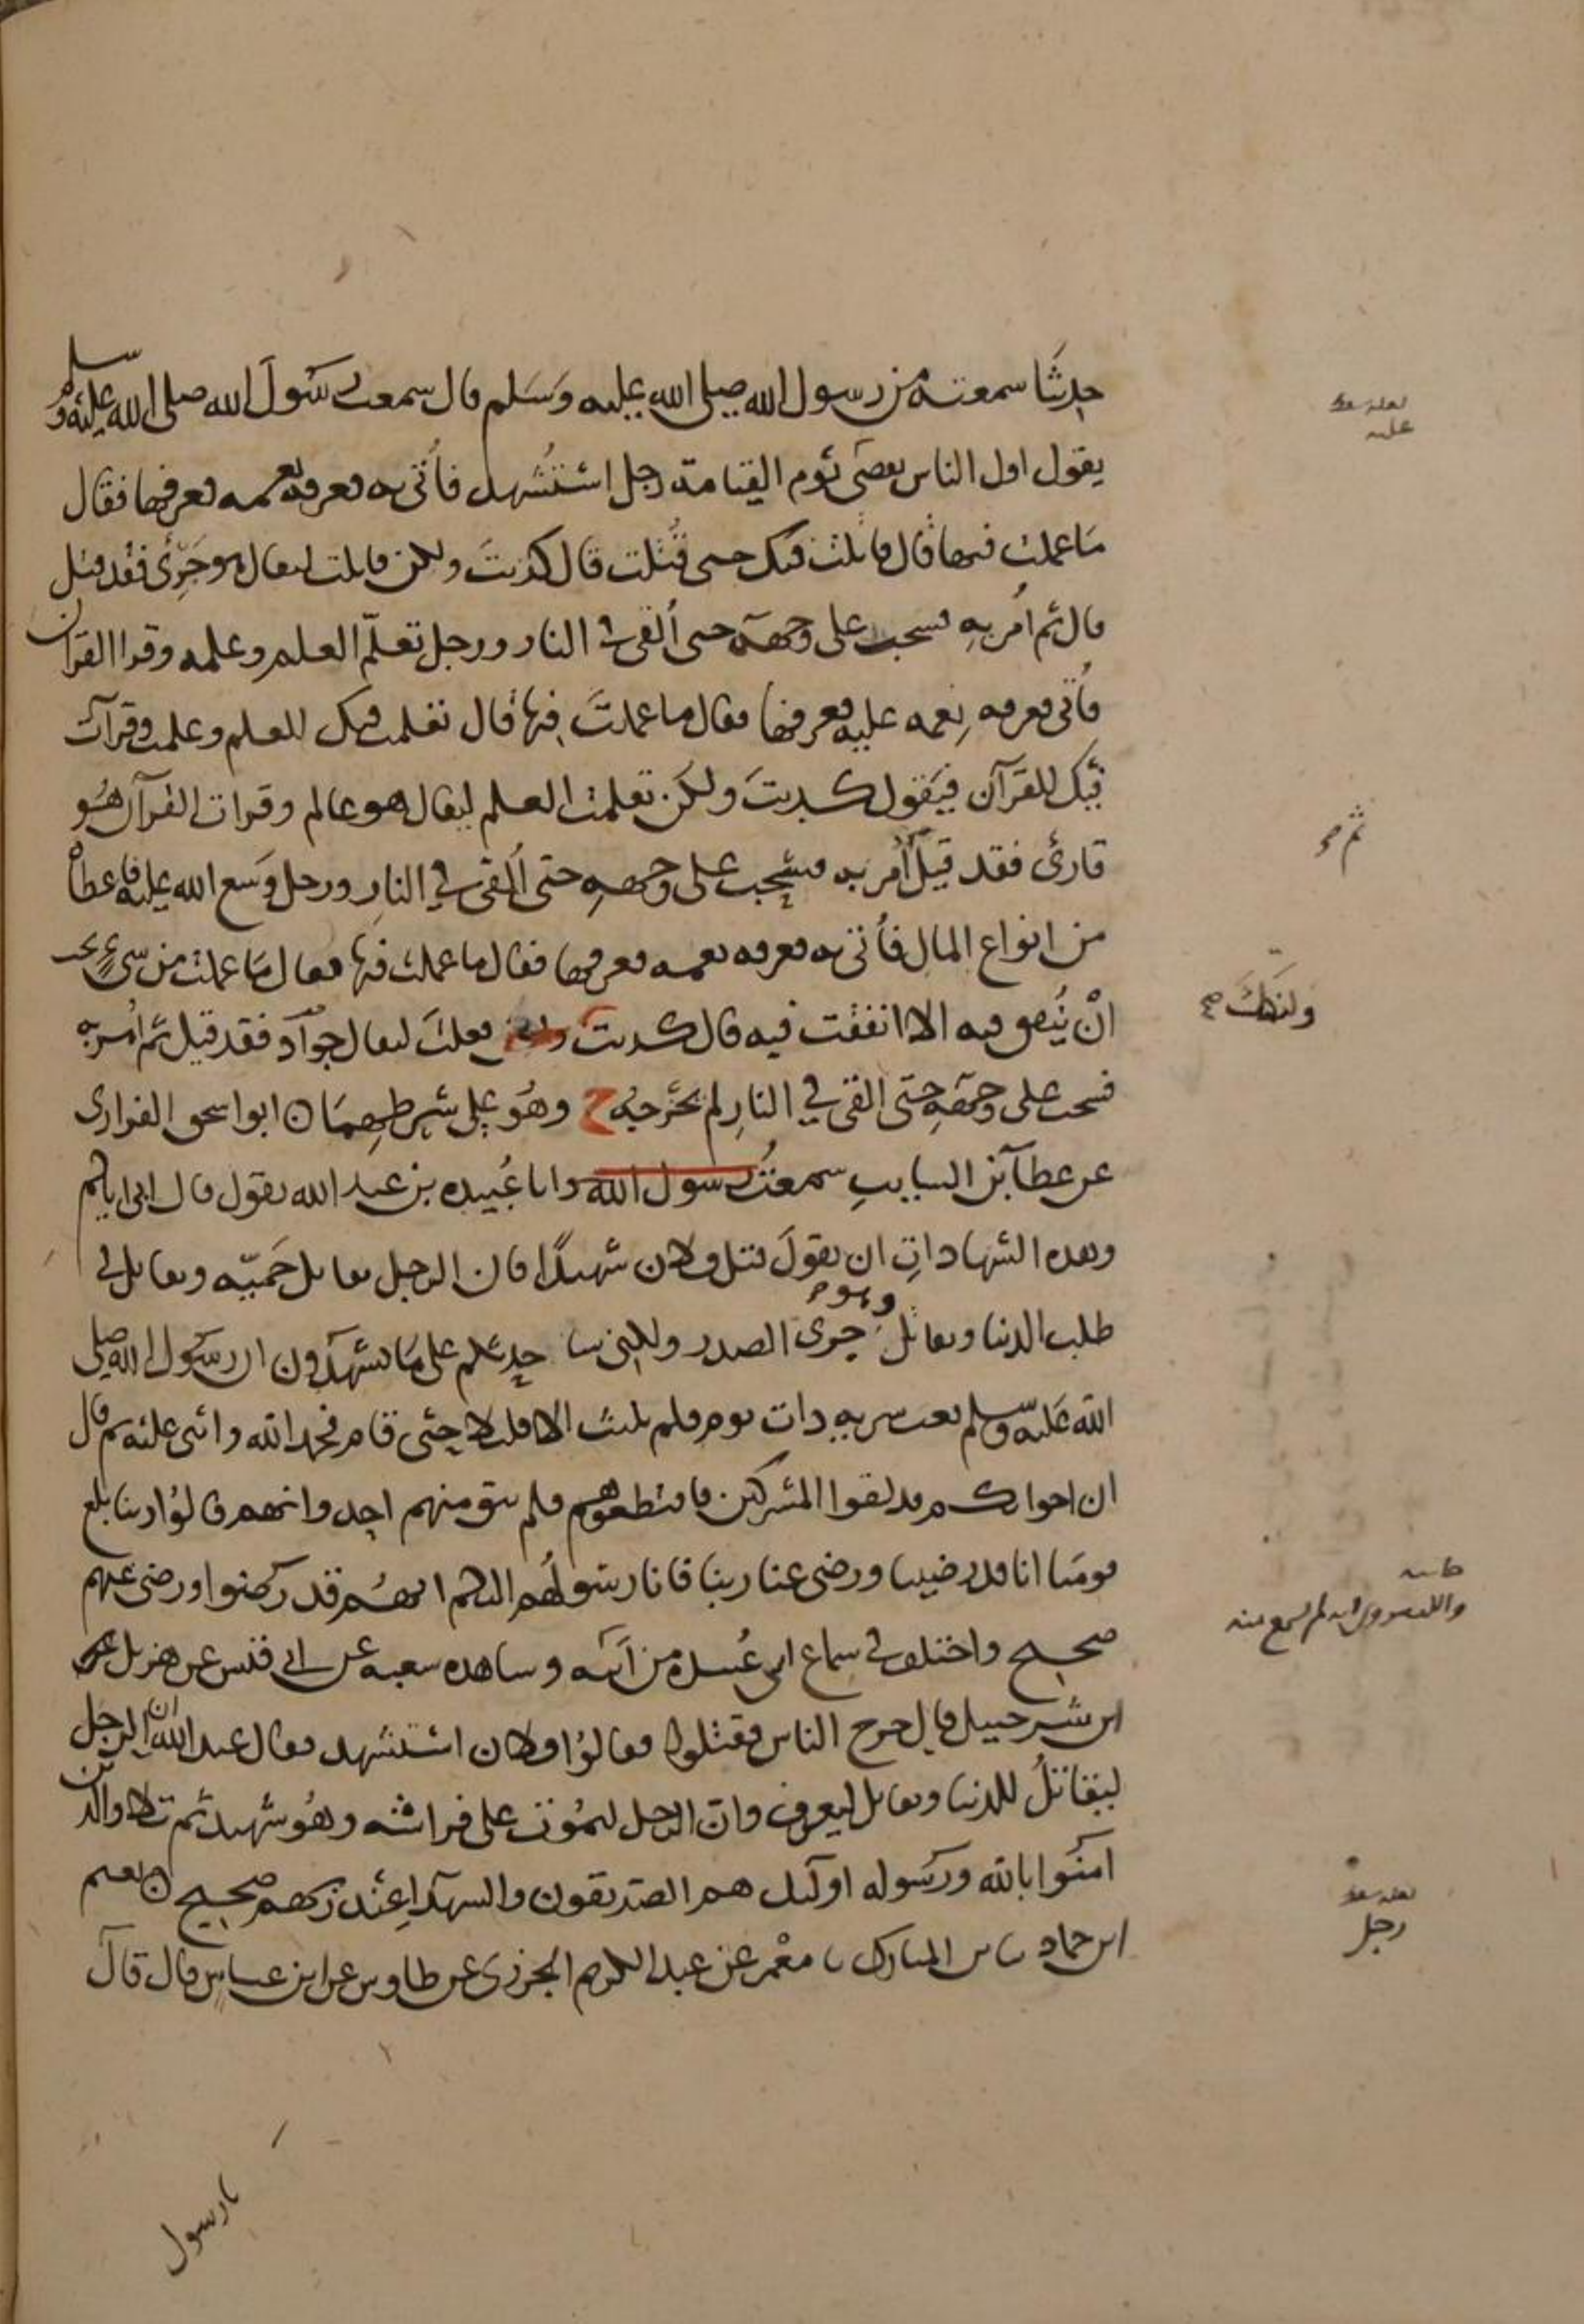 حدثنا سمعته من رسول الله صلى الله عليه وسلم قال سمعت رسول الله صلى الله عليه وسلم
يقول اول الناس يقضى يوم القيامة رجل استشهد فأتى به فعرفه نعمه فعرفها فقال
ما عملت فيها قال قاتلت فيك حتى قتلت قال كذبت ولكن قاتلت ليقال هو جرئ فقد قيل
قال ثم أمر به فسحب على وجهه حتى ألقى في النار ورجل تعلم العلم وعلمه وقرا القران
فأتى فعرفه نعمه عليه فعرفها فقال ما عملت فيها قال تعلمت فيك العلم وعلمت وقرآت
فيك القرآن فيقول كذبت ولكن تعلمت العلم ليقال هو عالم وقرات القرآن هو
قارئ فقد قيل أمر به فسحب على وجهه حتى ألقي في النار ورجل وسع الله عليه فاعطاه
من انواع المال فأتى به فعرفه نعمه فعرفها فقال ما عملت فيها فقال ما عملت من شيء تحب
ان ينفق فيه الا انفقت فيه قال كذبت ولكن فعلت ليقال جوآد فقد قيل ثم أمر به
فسحب على وجهه حتى القي في النار لم يخرجه خ وهو على شرطهما ن ابو اسحق الفزارى
عن عطآ بن السايب سمعت رسول الله وابا عبيده بن عبد الله يقول قال ابى اياكم
وهذه الشهادات ان يقول قتل فلان شهيدا فان الرجل يقاتل حمية ويقاتل في
طلب الدنيا ويقاتل وهو جرى الصدر ولكنى سا حدثكم على ما تشهدون ان رسول الله صلى
الله عليه وسلم بعث سريه ذات يوم فلم يلبث الا قليلا حتى قام فحمد الله واثنى عليه ثم قال
ان اخوانكم قد لقوا المشركين فاقتطعوهم فلم يبق منهم احد وانهم قالوا ربنا بلغ
قومنا انا قد رضينا ورضى عنا ربنا فانا رسولهم اليكم انهم قد رضوا ورضى عنهم
صحيح واختلف في سماع ابى عبيدة من أبيه وشاهده شعبه عن ابى قيس عن هزيل
ابن شرحبيل قال خرج الناس فقتلوا فقالوا فلان استشهد فقال عبد الله ان الرجل
ليقاتل للدنيا ويقاتل ليعرف وان الرجل ليموت على فراشه وهو شهيد ثم تلا والذين
امنوا بالله ورسوله اولئك هم الصديقون والشهدآ عند ربهم صحيح ن نعيم
ابن حماد نا ابن المبارك نا معمر عن عبد الكريم الجزرى عن طاوس عن ابن عباس قال قال
يا رسول
لعله سقط
عليه
ثم صح
ولكنك صح
حاشيه
لم يسمع منه
لعله سقط
رجل